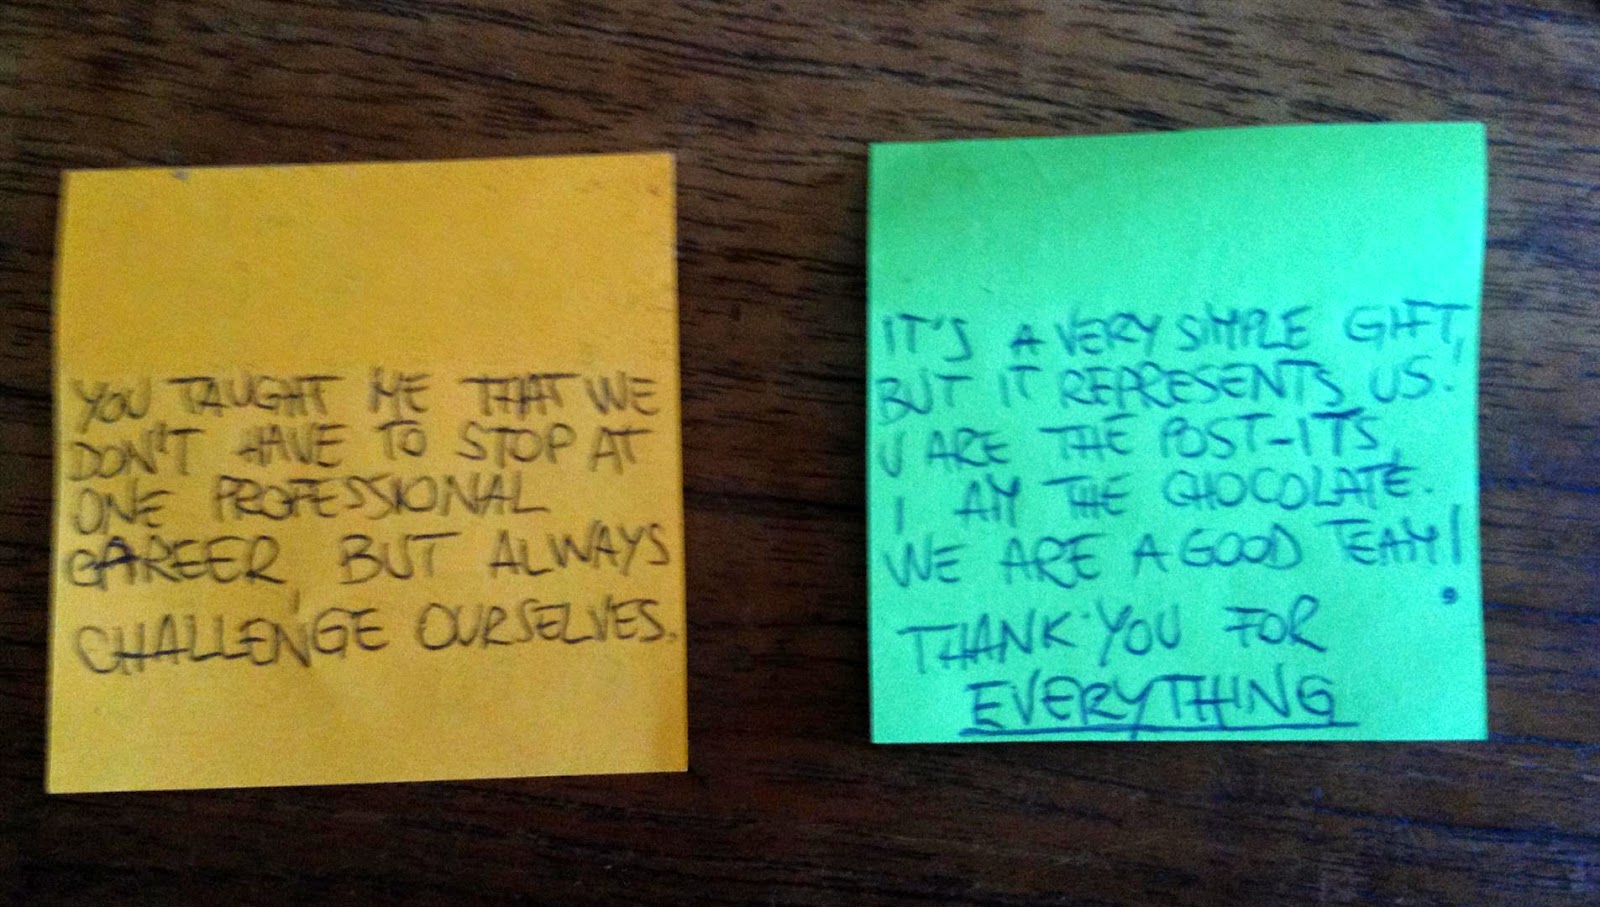 YOU TAUGHT ME THAT WE
DON'T HAVE TO STOP AT
ONE PROFESSIONAL
CAREER, BUT ALWAYS
CHALLENGE OURSELVES.
IT'S A VERY SIMPLE GIFT,
BUT IT REPRESENTS US!
U ARE THE POST-ITS,
I AM THE CHOCOLATE.
WE ARE A GOOD TEAM!
THANK YOU FOR
EVERYTHING